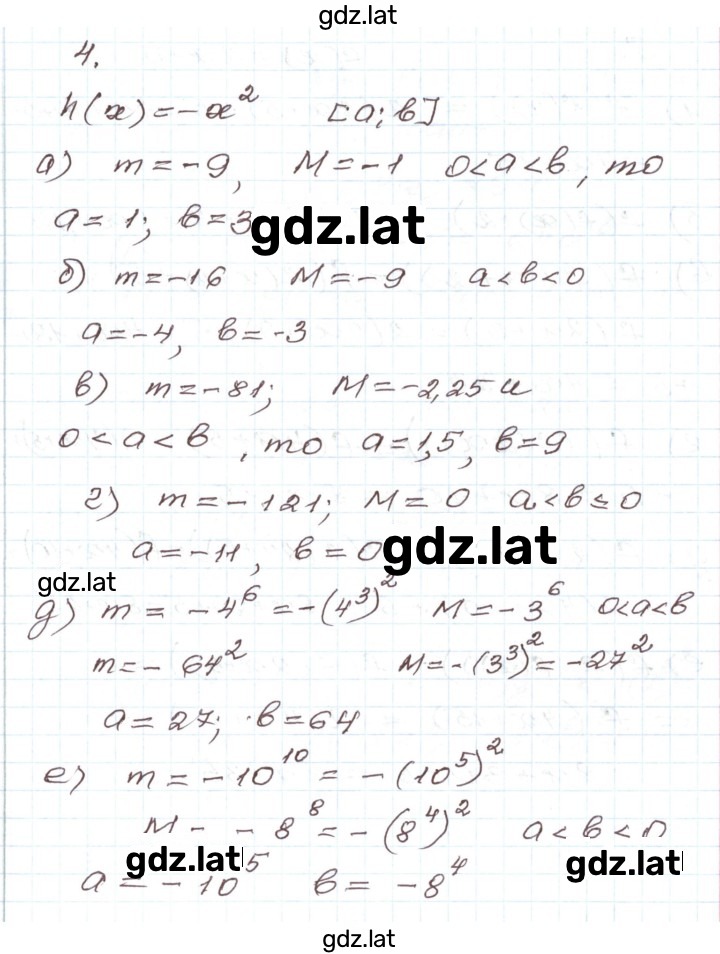 gdz.lat
4.
h(x) = -x² [a; в]
а) m = -9, M = -1 0<a<в, то
a = 1; в = 3
gdz.lat
б) m = -16 M = -9 a<в<0
a = -4, в = -3
в) m = -81; M = -2,25 и
0<a<в, то a = 1,5, в = 9
г) m = -121; M = 0 a<в≤0
a = -11, в = 0
gdz.lat
gdz.lat
д) m = -4⁶ = -(4³)² M = -3⁶ 0<a<в
m = -64² M = -(3³)² = -27²
a = 27; в = 64
е) m = -10¹⁰ = -(10⁵)²
M - -8⁸ = -(8⁴)² a<в<0
gdz.lat gdz.lat
a = -10⁵ в = -8⁴
gdz.lat